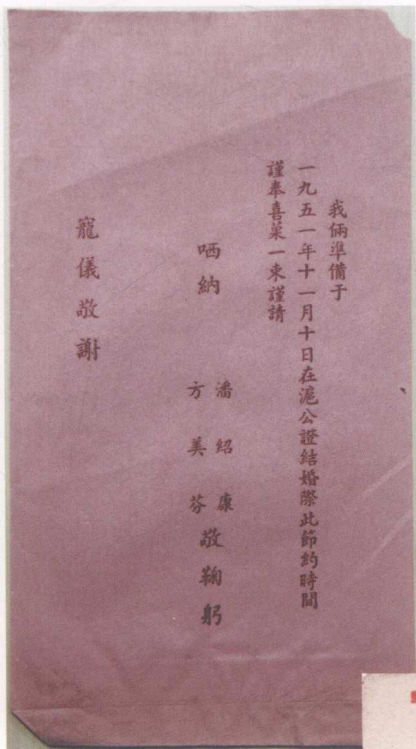 我倆準備于
一九五一年十一月十日在滬公證結婚際此節約時間
謹奉喜菓一束謹請
哂納
潘紹康
方美芬
敬鞠躬
寵儀敬謝